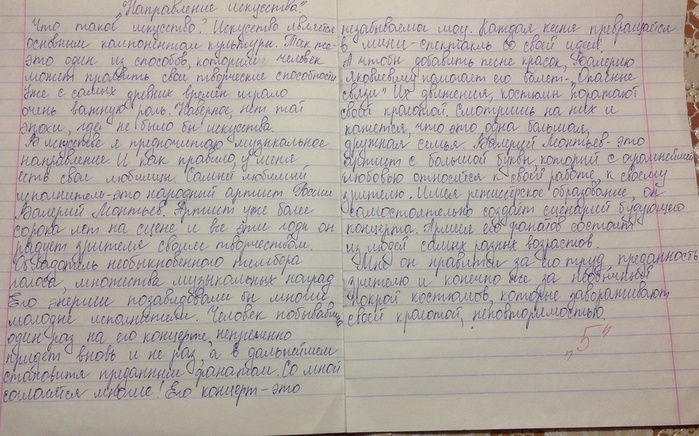 "Направление искусства"
Что такое искусство? Искусство является
основным компонентом культуры. Так же
это один из способов, которым человек
может проявить свои творческие способности
уже с самых древних времен играло
очень важную роль. Наверное, нет той
эпохи, где не было бы искусства.
В искусстве я предпочитаю музыкальное
направление И как правило, у меня
есть свои любимцы. Самый любимый
исполнитель-это народный артист России
Валерий Леонтьев. Артист уже более
сорока лет на сцене и все эти года он
радует зрителя своим творчеством.
Обладатель необыкновенного тембора
голоса, множества музыкальных наград
Его энергии позавидовали бы многие
молодые исполнители. Человек побывавший
один раз на его концерте, непременно
придет вновь и не раз, а в дальнейшем
становится преданным фанатом. Со мной
согласятся многие! Его концерт-это
незабываемое шоу. Каждая песня превращается
в мини-спектакль со своей идеей.
А чтобы добавить песне красок, Валерию
Яковлевичу помогает его балет-"Опасные
связи" Их движения, костюмы поражают
своей красотой. Смотришь на них и
кажется, что это одна большая,
дружная семья. Валерий Леонтьев-это
артист с большой буквы который с огромнейшей
любовью относится к своей работе, к своему
зрителю. Имея режиссёрское образование, он
самостоятельно создает сценарий будущего
концерта. Армия его фанатов состоит
из людей самых разных возрастов.
Мне он нравится за его труд, преданность
зрителю и конечно же за необычный
покрой костюмов, которые завораживают
своей красотой, неповторимостью.
"5"